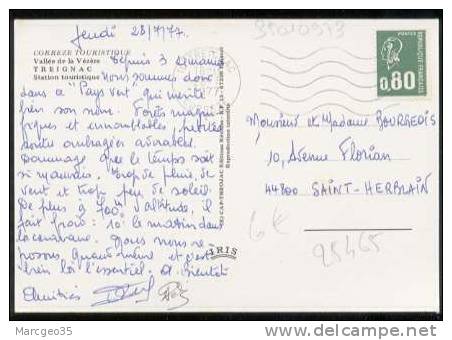 Jeudi 28/7/77.
CORREZE TOURISTIQUE
Vallée de la Vézère
TREIGNAC
Station touristique
Depuis 3 semaines
nous sommes donc
dans ce "Pays vert" qui mérite
bien son nom. Forêts magni-
fiques et innombrables, petites
routes ombragées adorables.
Dommage que le temps soit
si mauvais. Trop de pluie, de
vent et trop peu de soleil.
De plus à 700m d'altitude, il
fait froid : 10° le matin dans
la caravane. Nous nous re-
posons quand même et c'est
bien là l'essentiel. A bientôt
Amitiés
Reproduction interdite
IRIS
35010973
POSTES
0,80
REPUBLIQUE FRANÇAISE
Monsieur et Madame BOURGEOIS
10, Avenue Florian
44800 SAINT-HERBLAIN
6€
95465
© Marcgeo35
http://www.delcampe.net